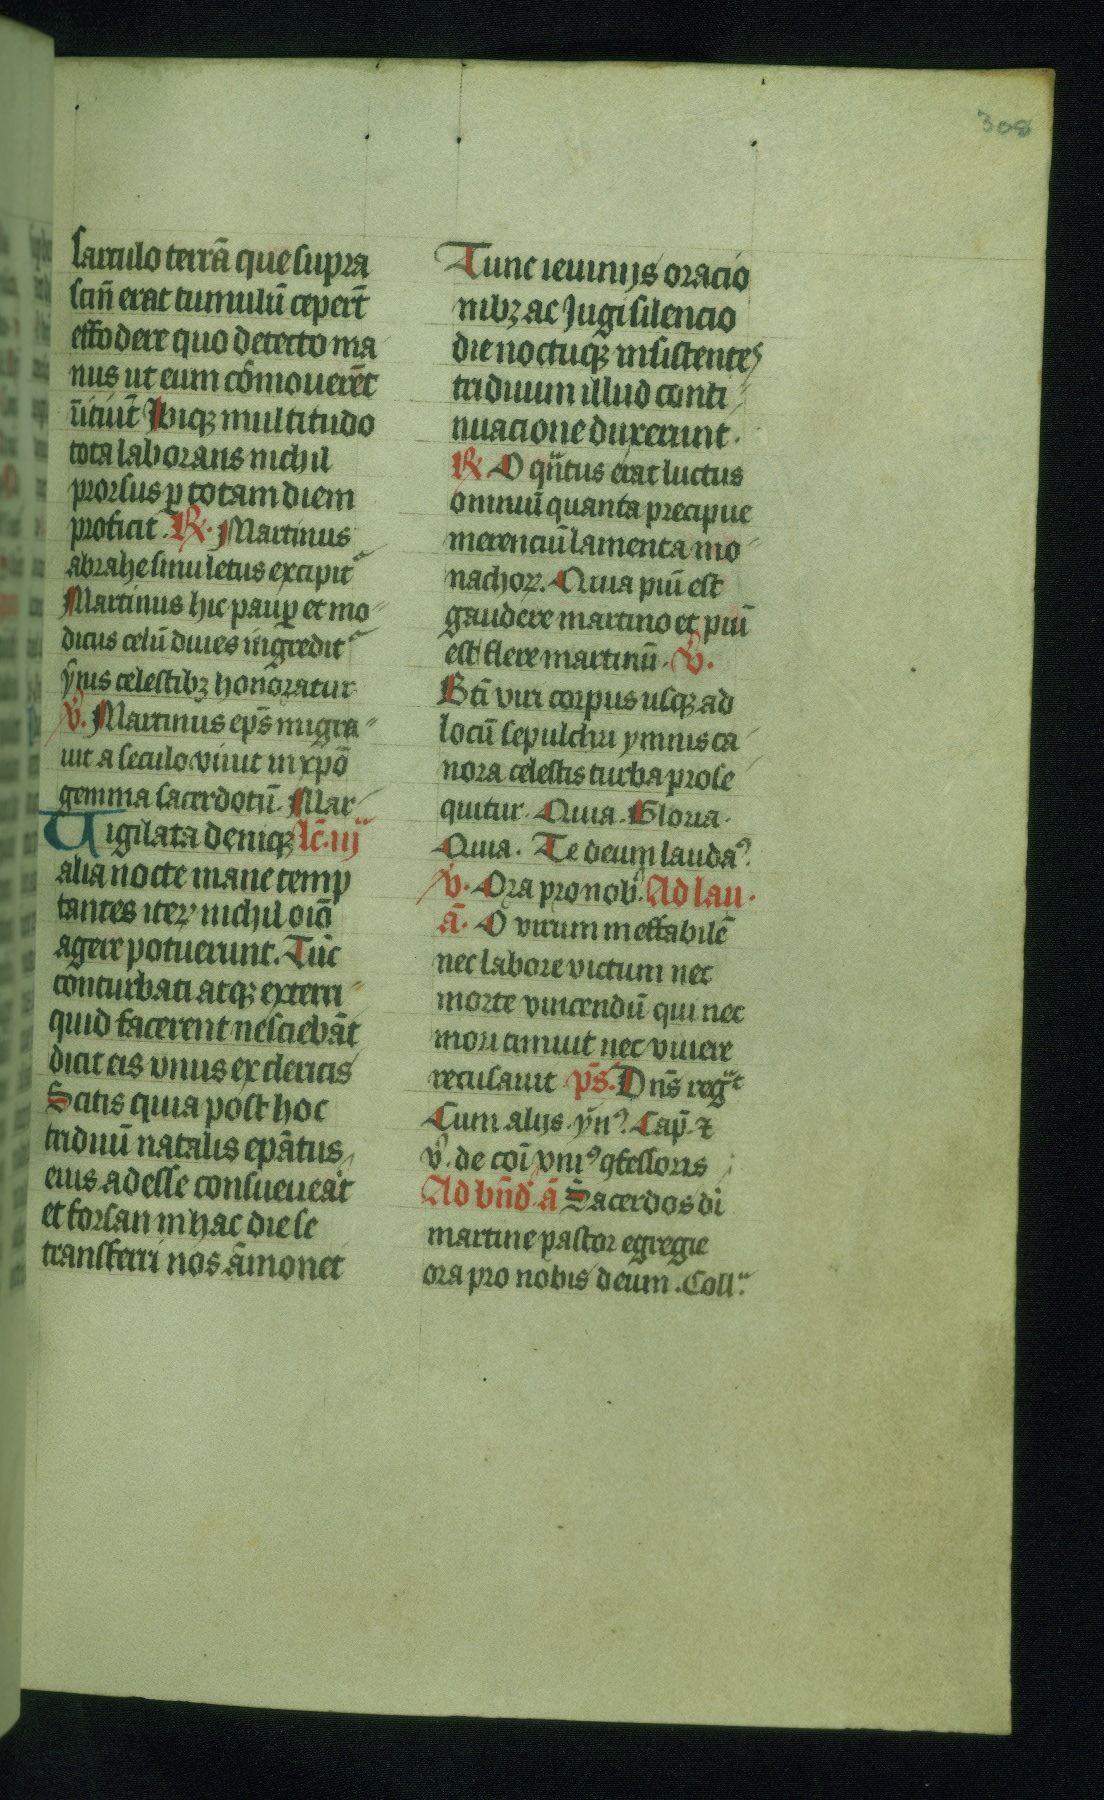 308
sarculo terrā que supra
scm̄ erat tumulū ceperūt
effodere quo detecto ma
nus ut eum cōmouerēt
Ibiqꝫ multitudo
tota laborans nichil
prorsus ꝑ totam diem
proficit. R. Martinus
abrahe sinu letus excipit᷑
Martinus hic pauꝑ et mo⸗
dicus celū diues ingredit᷑
ymis celestibꝫ honoratur
V. Martinus ep̄s migra⸗
uit a seculo viuit in xp̄o
gemma sacerdotū Mar⸗
Uigilata deniqꝫ lc̄. iij
alia nocte mane temp
tantes iteꝝ nichil oīo
agere potuerunt. Tūc
conturbati atqꝫ exterri⸗
quid facerent nesciebāt
dicit eis vnus ex clericis
Scitis quia post hoc
triduū natalis ep̄atus
eius adesse consueuerat
et forsan in hac die se
transferri nos āmonet
Tunc ieiunijs oracio
nibꝫ ac Jugi silencio
die noctuqꝫ insistentes
triduum illud conti⸗
nuacione duxerunt.
R. O qͣntus erat luctus
omniū quanta precipue
merenciū lamenta mo⸗
nachoꝝ. Quia piū est
gaudere martino et piū
est flere martinū. V.
Sc̄i viri corpus usqꝫ ad
locū sepulchri ymnis ca⸗
nora celestis turba prose⸗
quitur. Quia. Gloria.
Quia. Te deum laudaꝰ.
V. Ora pro nob̄. Ad lau.
ā. O virum ineffabilē
nec labore victum nec
morte vincendū qui nec
mori timuit nec viuere
recusauit p̄s. Dn̄s regͣt
Cum alijs ym̄ꝰ. Cap̄. ⁊
v̄. de coī vniꝰ ꝯfessoris
Ad bn̄d̄. ā Sacerdos dī
martine pastor egregie
ora pro nobis deum. Coll̄.